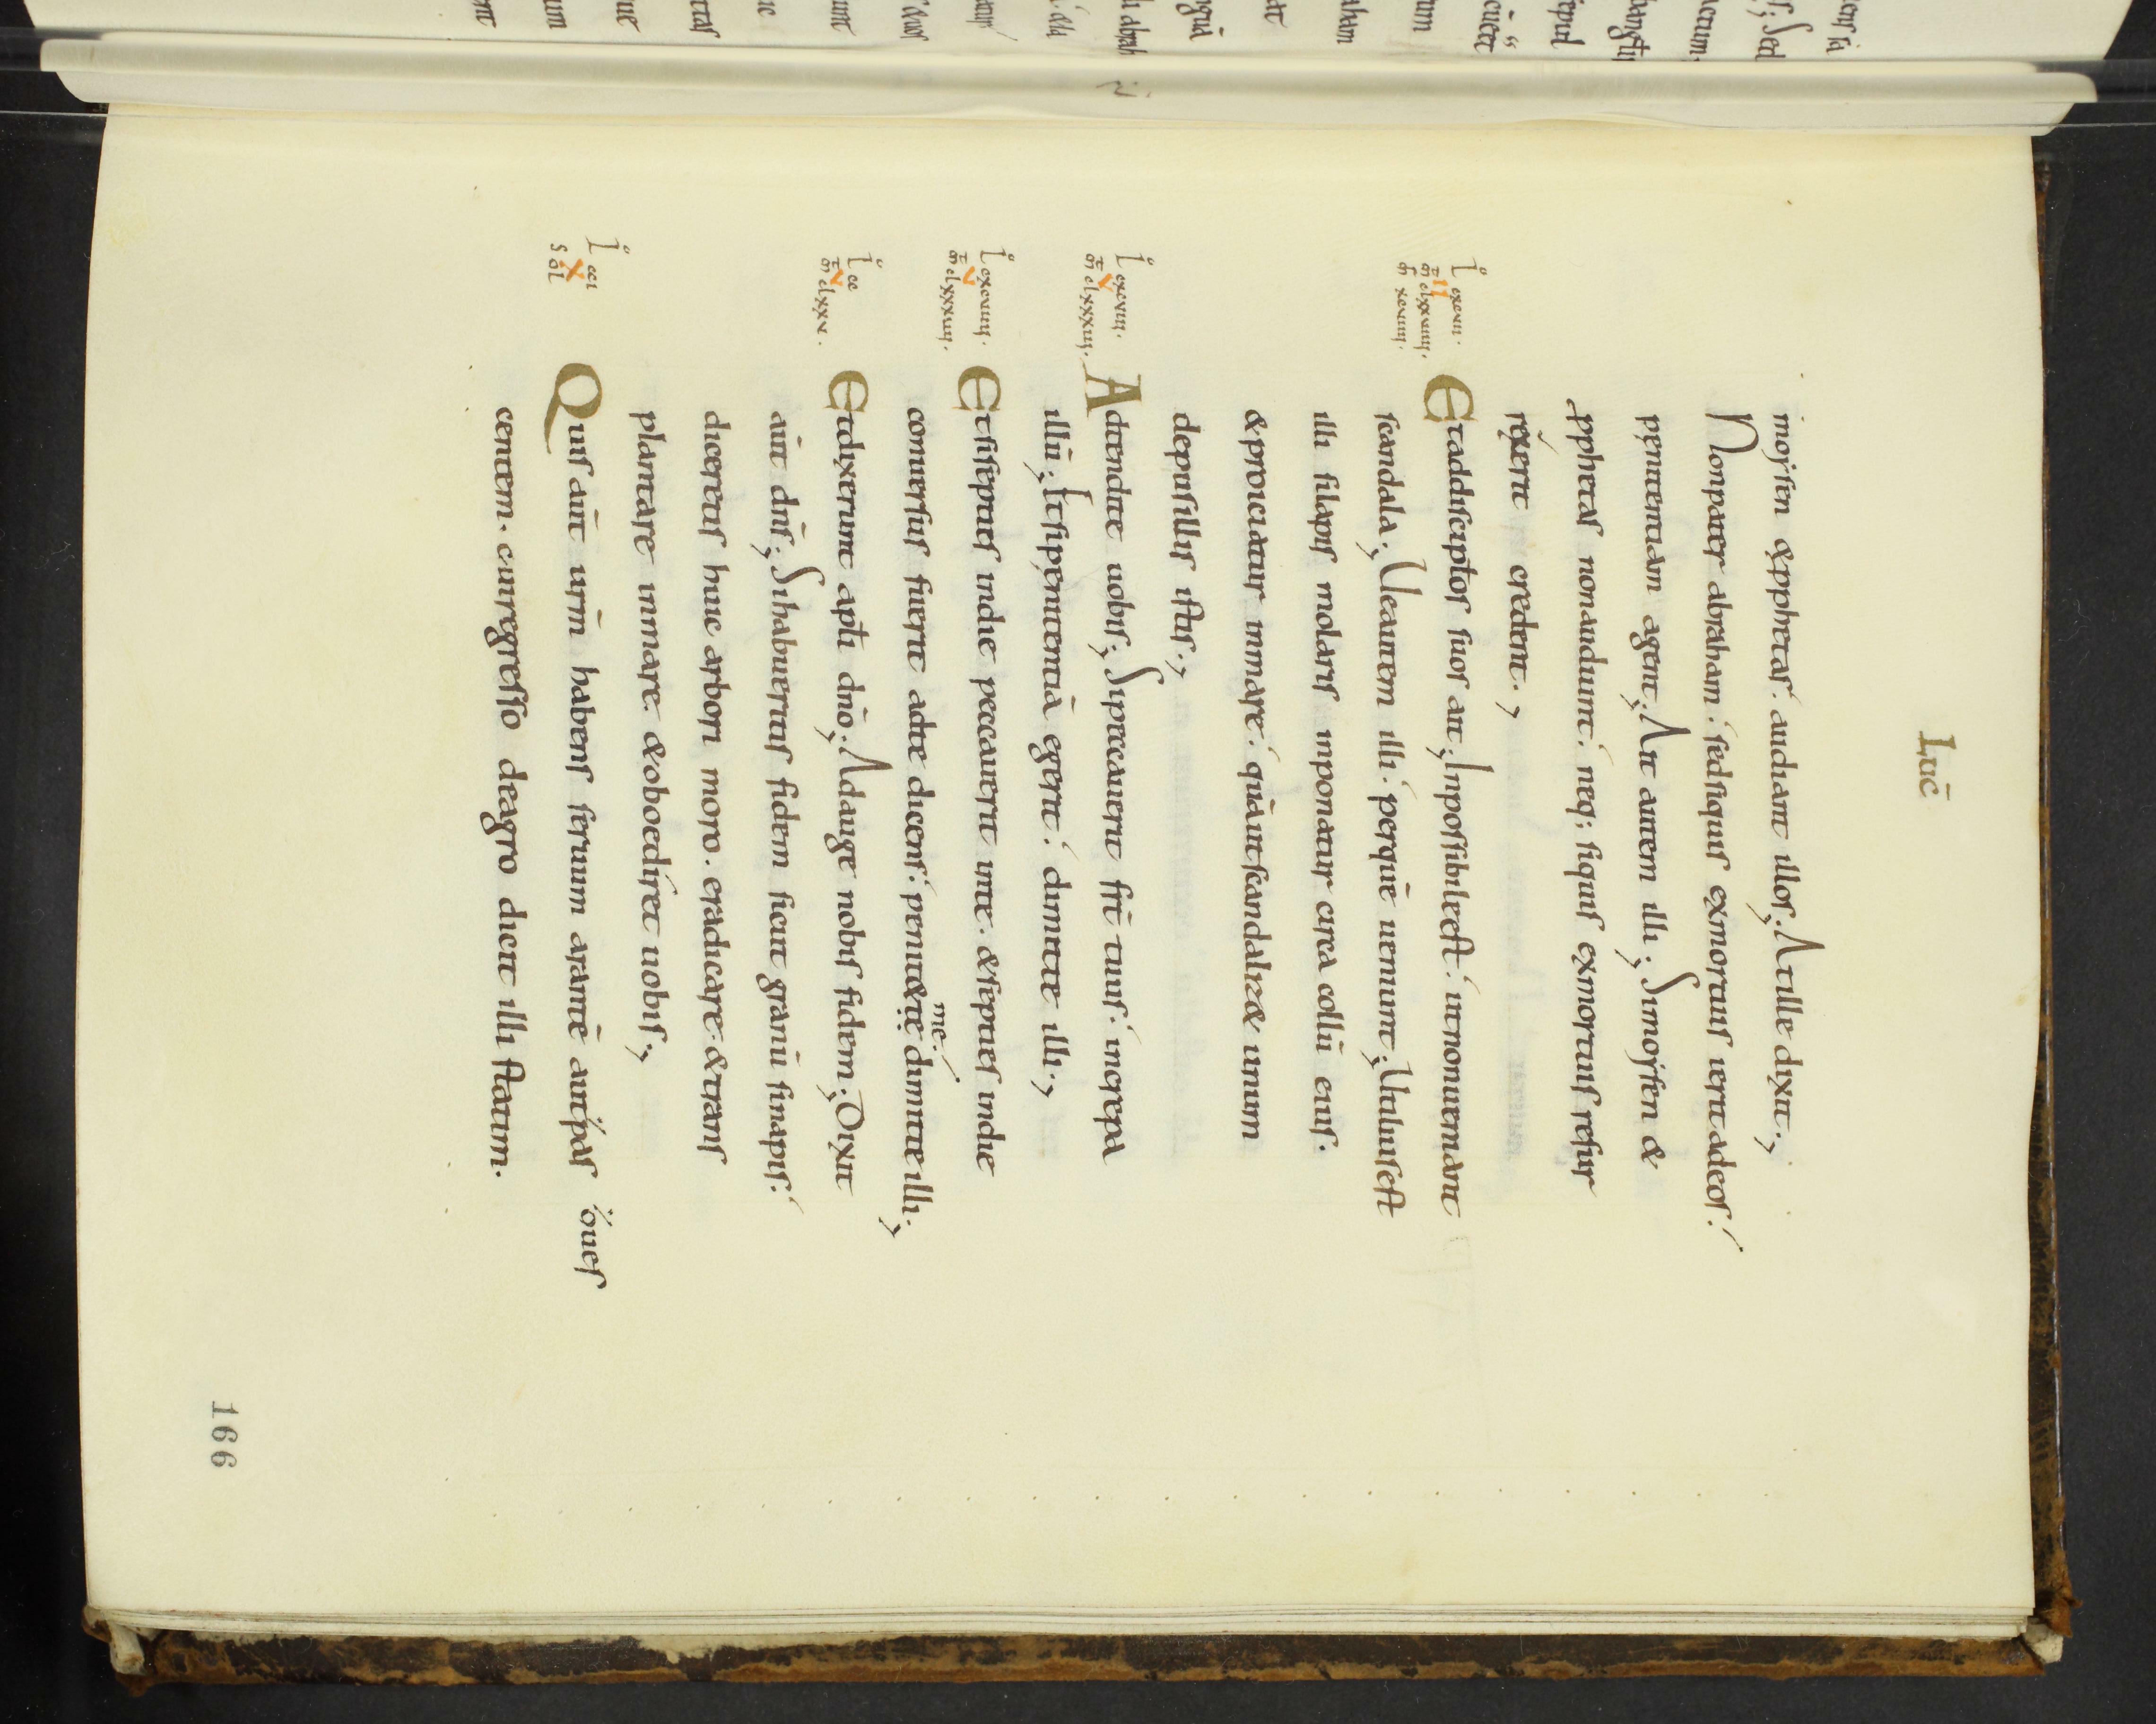 Luc̄
moysen & pphetas. audiant illos; At ille dixit;
Non pater abraham. sed siquis ex mortuis ierit ad eos.
penitentiam agent; Ait autem illi; Si moysen &
pphetas non audiunt. neq; siquis ex mortuis resur
rexerit credent;
lo cxcvii.
II
m̄ clxxviiii.
m̄r xcviiii.
Et ad discip̄tos suos ait; Inpossibile est. ut non ueniant
scandala; Ue autem illi. per quē ueniunt; Utilius est
illi si lapis molaris inponatur circa collū eius.
& proiciatur in mare. quā ut scandalizet unum
de pusillis istis;
lo cxcviii.
V
m̄ clxxxiii.
Adtendite uobis; Si peccauerit frt̄ tuus. increpa
illū; Et si penitentiā egerit. dimitte illi;
lo cxcviiii.
V
m̄ clxxxiiii.
Et si septies in die peccauerit in te. & septies in die
conuersus fuerit ad te dicens. penit&te me. dimitte illi;
lo cc
V
m̄ clxxv.
Et dixerunt apti dn̄o; Adauge nobis fidem; Dixit
aūt dn̄s; Si habueritis fidem sicut granū sinapis.
diceretis huic arbori moro. eradicare. & trans
plantare in mare. & oboediret uobis;
lo cci
X
sol
Quis aūt ur̄m habens seruum arantē aut pas oues
centem. cui regresso de agro dicit illi statim.
166